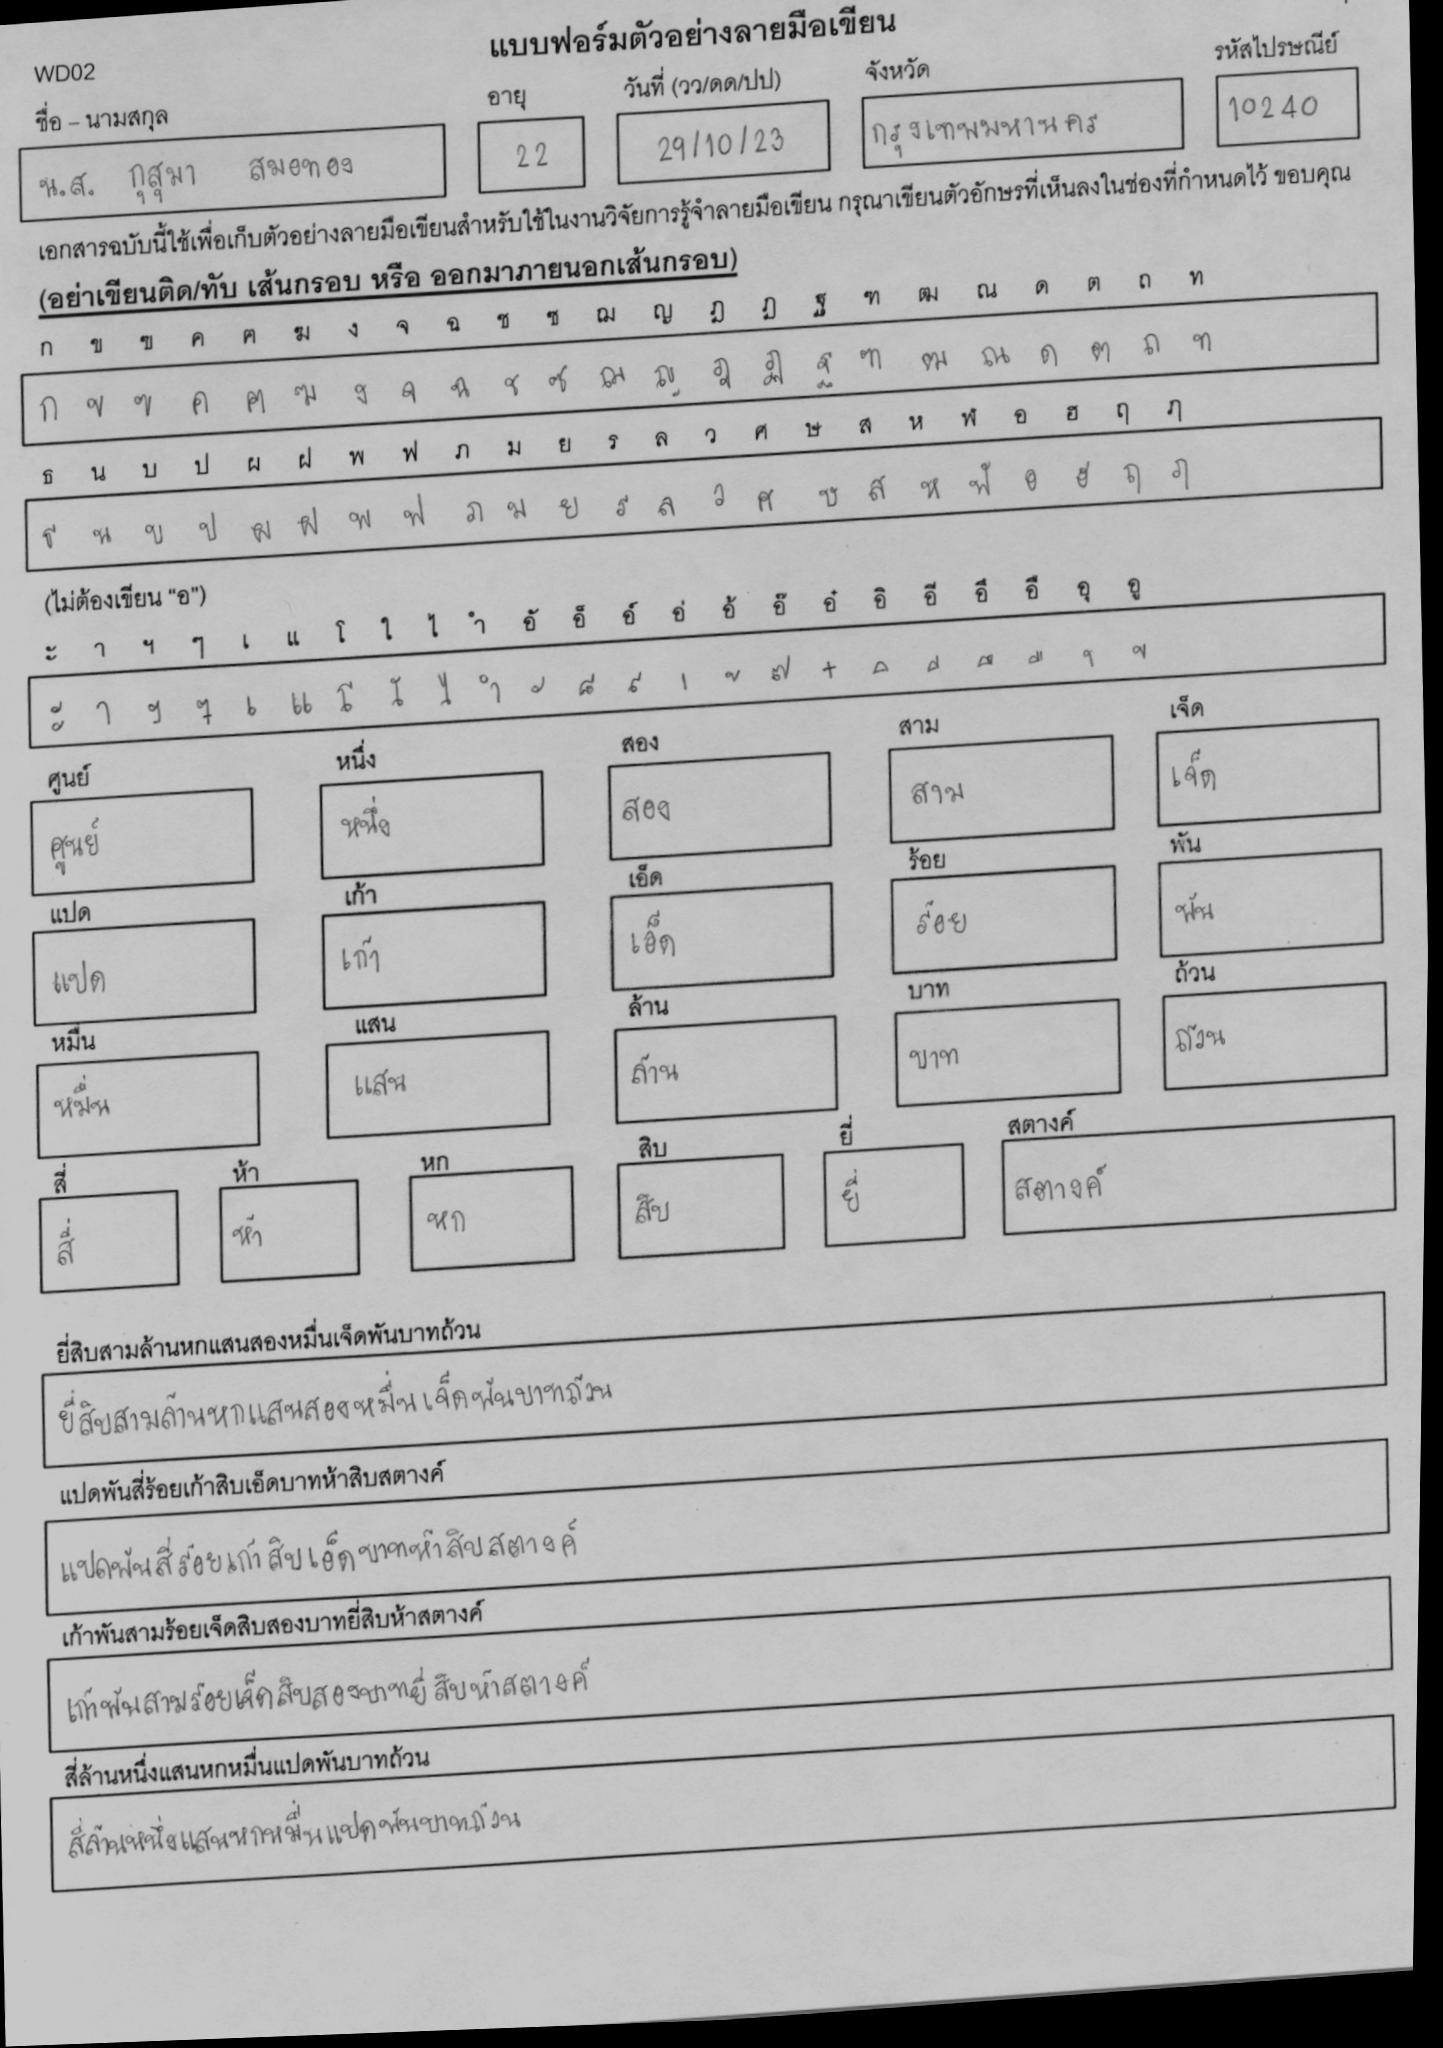 แบบฟอร์มตัวอย่างลายมือเขียน
WD02
ชื่อ – นามสกุล อายุ วันที่ (วว/ดด/ปป) จังหวัด รหัสไปรษณีย์
น.ส. กุสุมา สมอทอง 22 29/10/23 กรุงเทพมหานคร 10240
เอกสารฉบับนี้ใช้เพื่อเก็บตัวอย่างลายมือเขียนสำหรับใช้ในงานวิจัยการรู้จำลายมือเขียน กรุณาเขียนตัวอักษรที่เห็นลงในช่องที่กำหนดไว้ ขอบคุณ
(อย่าเขียนติด/ทับ เส้นกรอบ หรือ ออกมาภายนอกเส้นกรอบ)
ก ข ฃ ค ฅ ฆ ง จ ฉ ช ซ ฌ ญ ฎ ฏ ฐ ฑ ฒ ณ ด ต ถ ท
ก ข ฃ ค ฅ ฆ ง จ ฉ ช ซ ฌ ญ ฎ ฏ ฐ ฑ ฒ ณ ด ต ถ ท
ธ น บ ป ผ ฝ พ ฟ ภ ม ย ร ล ว ศ ษ ส ห ฬ อ ฮ ฤ ฦ
ธ น บ ป ผ ฝ พ ฟ ภ ม ย ร ล ว ศ ษ ส ห ฬ อ ฮ ฤ ฦ
(ไม่ต้องเขียน “อ”)
ะ า ฯ ๆ เ แ โ ใ ไ ำ อั อ็ อ์ อ่ อ้ อ๊ อ๋ อิ อี อึ อื อุ อู
ะ า ฯ ๆ เ แ โ ใ ไ ำ ั ็ ์ ่ ้ ๊ ๋ ิ ี ึ ื ุ ู
ศูนย์ หนึ่ง สอง สาม เจ็ด
ศูนย์ หนึ่ง สอง สาม เจ็ด
แปด เก้า เอ็ด ร้อย พัน
แปด เก้า เอ็ด ร้อย พัน
หมื่น แสน ล้าน บาท ถ้วน
หมื่น แสน ล้าน บาท ถ้วน
สี่ ห้า หก สิบ ยี่ สตางค์
สี่ ห้า หก สิบ ยี่ สตางค์
ยี่สิบสามล้านหกแสนสองหมื่นเจ็ดพันบาทถ้วน
ยี่สิบสามล้านหกแสนสองหมื่นเจ็ดพันบาทถ้วน
แปดพันสี่ร้อยเก้าสิบเอ็ดบาทห้าสิบสตางค์
แปดพันสี่ร้อยเก้าสิบเอ็ดบาทห้าสิบสตางค์
เก้าพันสามร้อยเจ็ดสิบสองบาทยี่สิบห้าสตางค์
เก้าพันสามร้อยเจ็ดสิบสองบาทยี่สิบห้าสตางค์
สี่ล้านหนึ่งแสนหกหมื่นแปดพันบาทถ้วน
สี่ล้านหนึ่งแสนหกหมื่นแปดพันบาทถ้วน